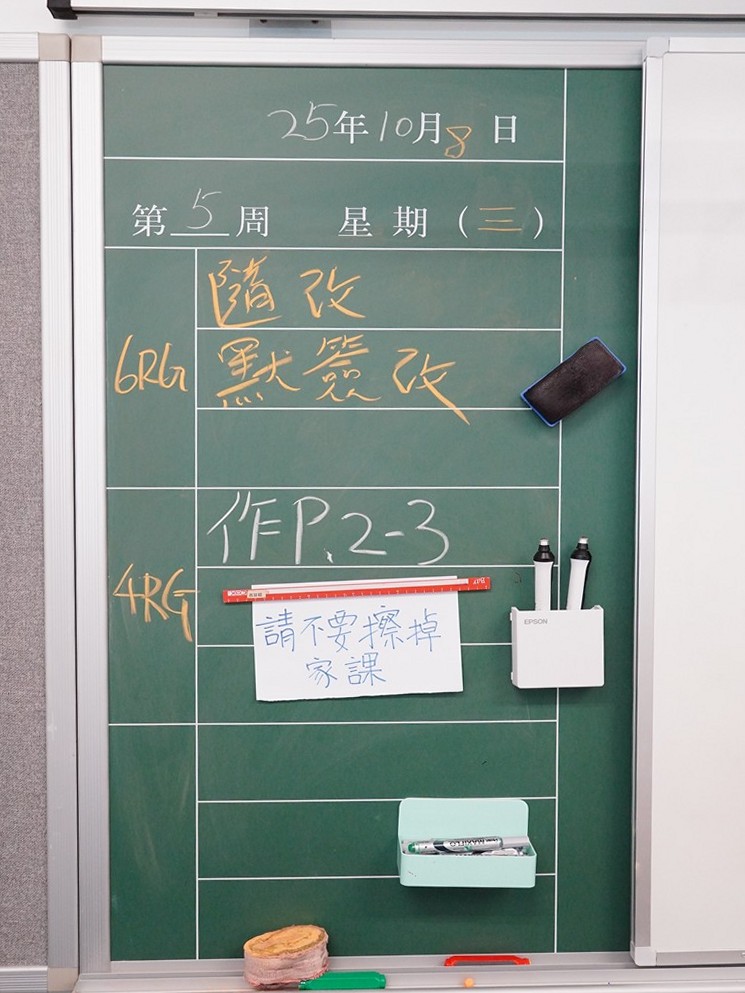 25年10月8日
第5周 星期（三）
6RG
隨改
默簽改
4RG
作P.2-3
請不要擦掉
家課
EPSON